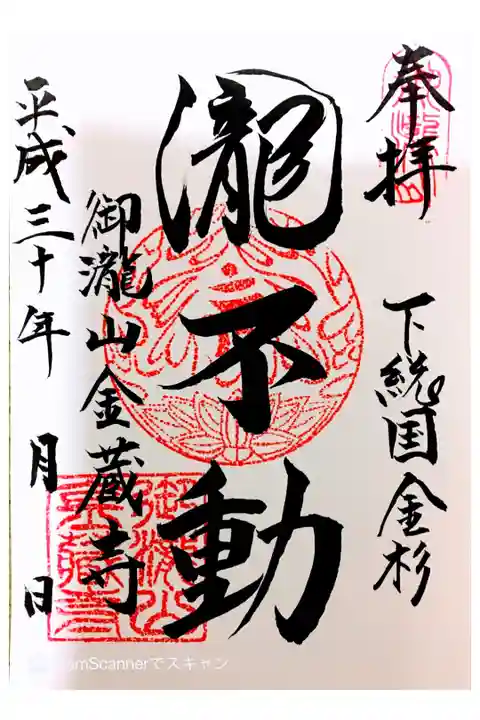 奉拝
下総国金杉
瀧不動
御瀧山金蔵寺
平成三十年 月 日
mScannerでスキャン